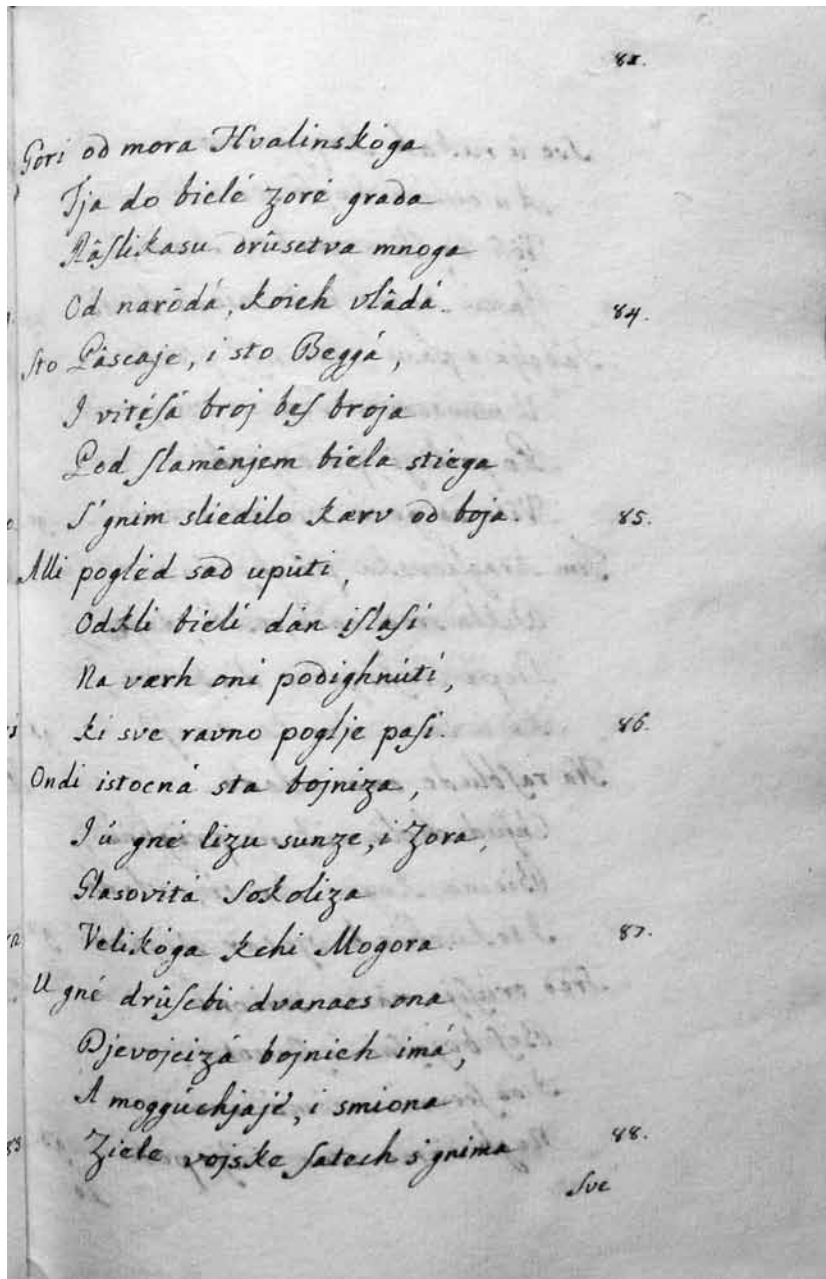 81.
Gori od mora Hvalinskóga
Tja do bielé zoré grada
Râſlikasu drûsctva mnoga
Od narôdá, koieh vlâdá. 84.
Sto Pâscaje, i sto Beggá,
I vitéſá broj beſ broja
Pod ſlamênjem biela stiega
S'gnim sliedilo kærv od boja. 85.
Alli poglèd sad upûti,
Odkli bielì dán iſlaſi
Na værh oni podighnúti,
ki sve ravno poglje paſi. 86.
Ondi istocná sta bojniza,
I ú gné lizu sunze, i Zora,
Glasovitá Sokoliza
Velikóga kchi Mogora. 87.
U gné drûſcbi dvanaes ona
Djevojcizá bojnieh imá,
A moggúchjajé, i smiona
Ziele vojske ſatech s'gnima 88.
Sve